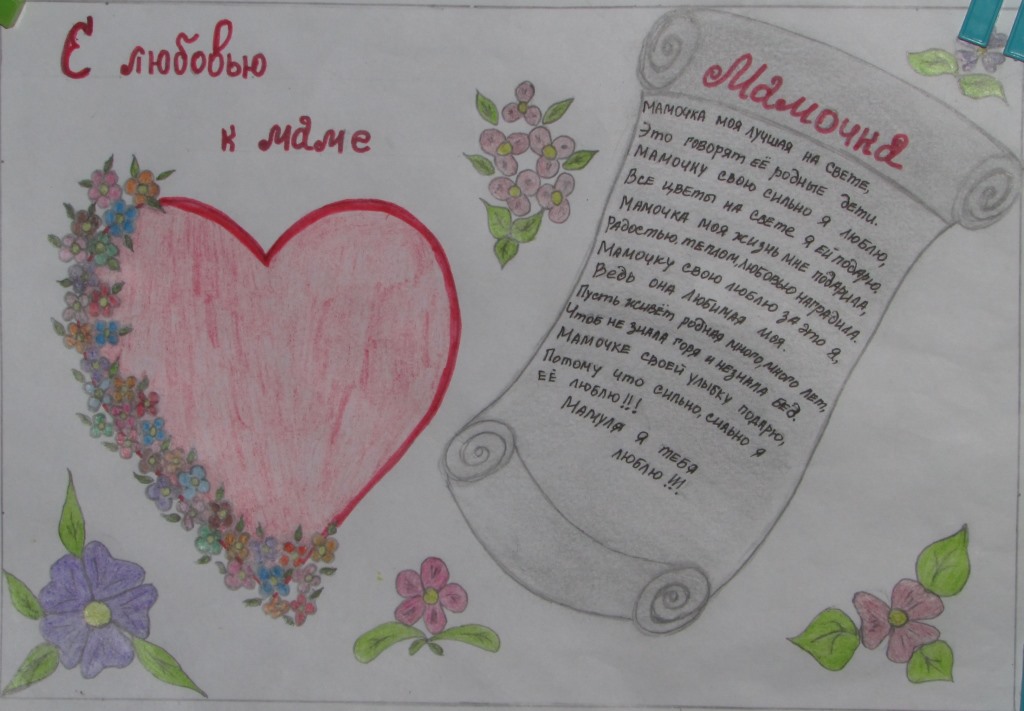 С любовью
к маме
Мамочка
Мамочка моя лучшая на свете,
Это говорят её родные дети.
Мамочку свою сильно я люблю,
Все цветы на свете я ей подарю,
Мамочка моя жизнь мне подарила,
Радостью, теплом, любовью наградила.
Мамочку свою люблю за это я,
Ведь она любимая моя.
Пусть живёт родная много, много лет,
Чтоб не знала горя и незнала бед.
Мамочке своей улыбку подарю,
Потому что сильно, сильно я
её люблю!!!
Мамуля я тебя
люблю!!!